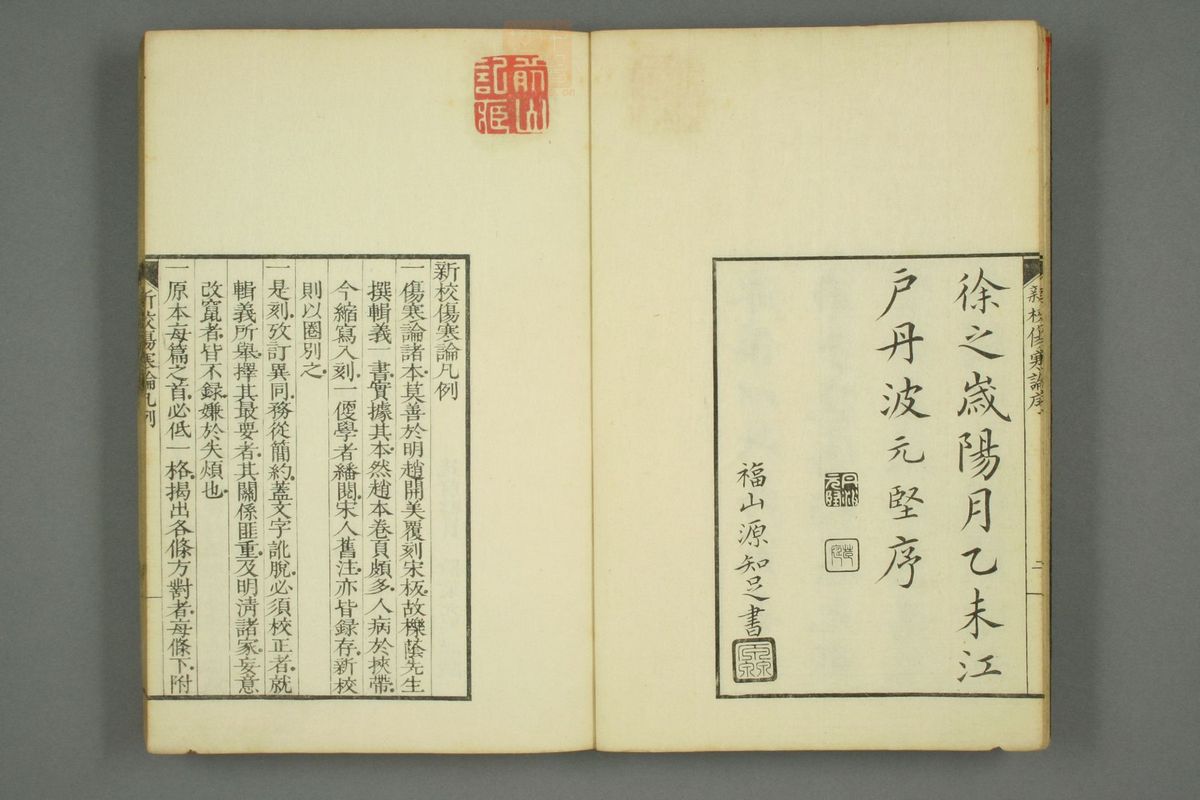 新校傷寒論序
徐之歲陽月乙未江
戶丹波元堅序
福山源知足書
二
新校傷寒論凡例
一傷寒論諸本莫善於明趙開美覆刻宋板故櫟蔭先生
撰輯義一書實據其本然趙本卷頁頗多人病於挾帶
今縮寫入刻一便學者繙閱宋人舊注亦皆錄存新校
則以圈別之
一是刻攷訂異同務從簡約蓋文字訛脫必須校正者就
輯義所舉擇其最要者其關係匪重及明清諸家妄意
改竄者皆不錄嫌於失煩也
一原本每篇之首必低一格揭出各條方對者每條下附
新校傷寒論凡例